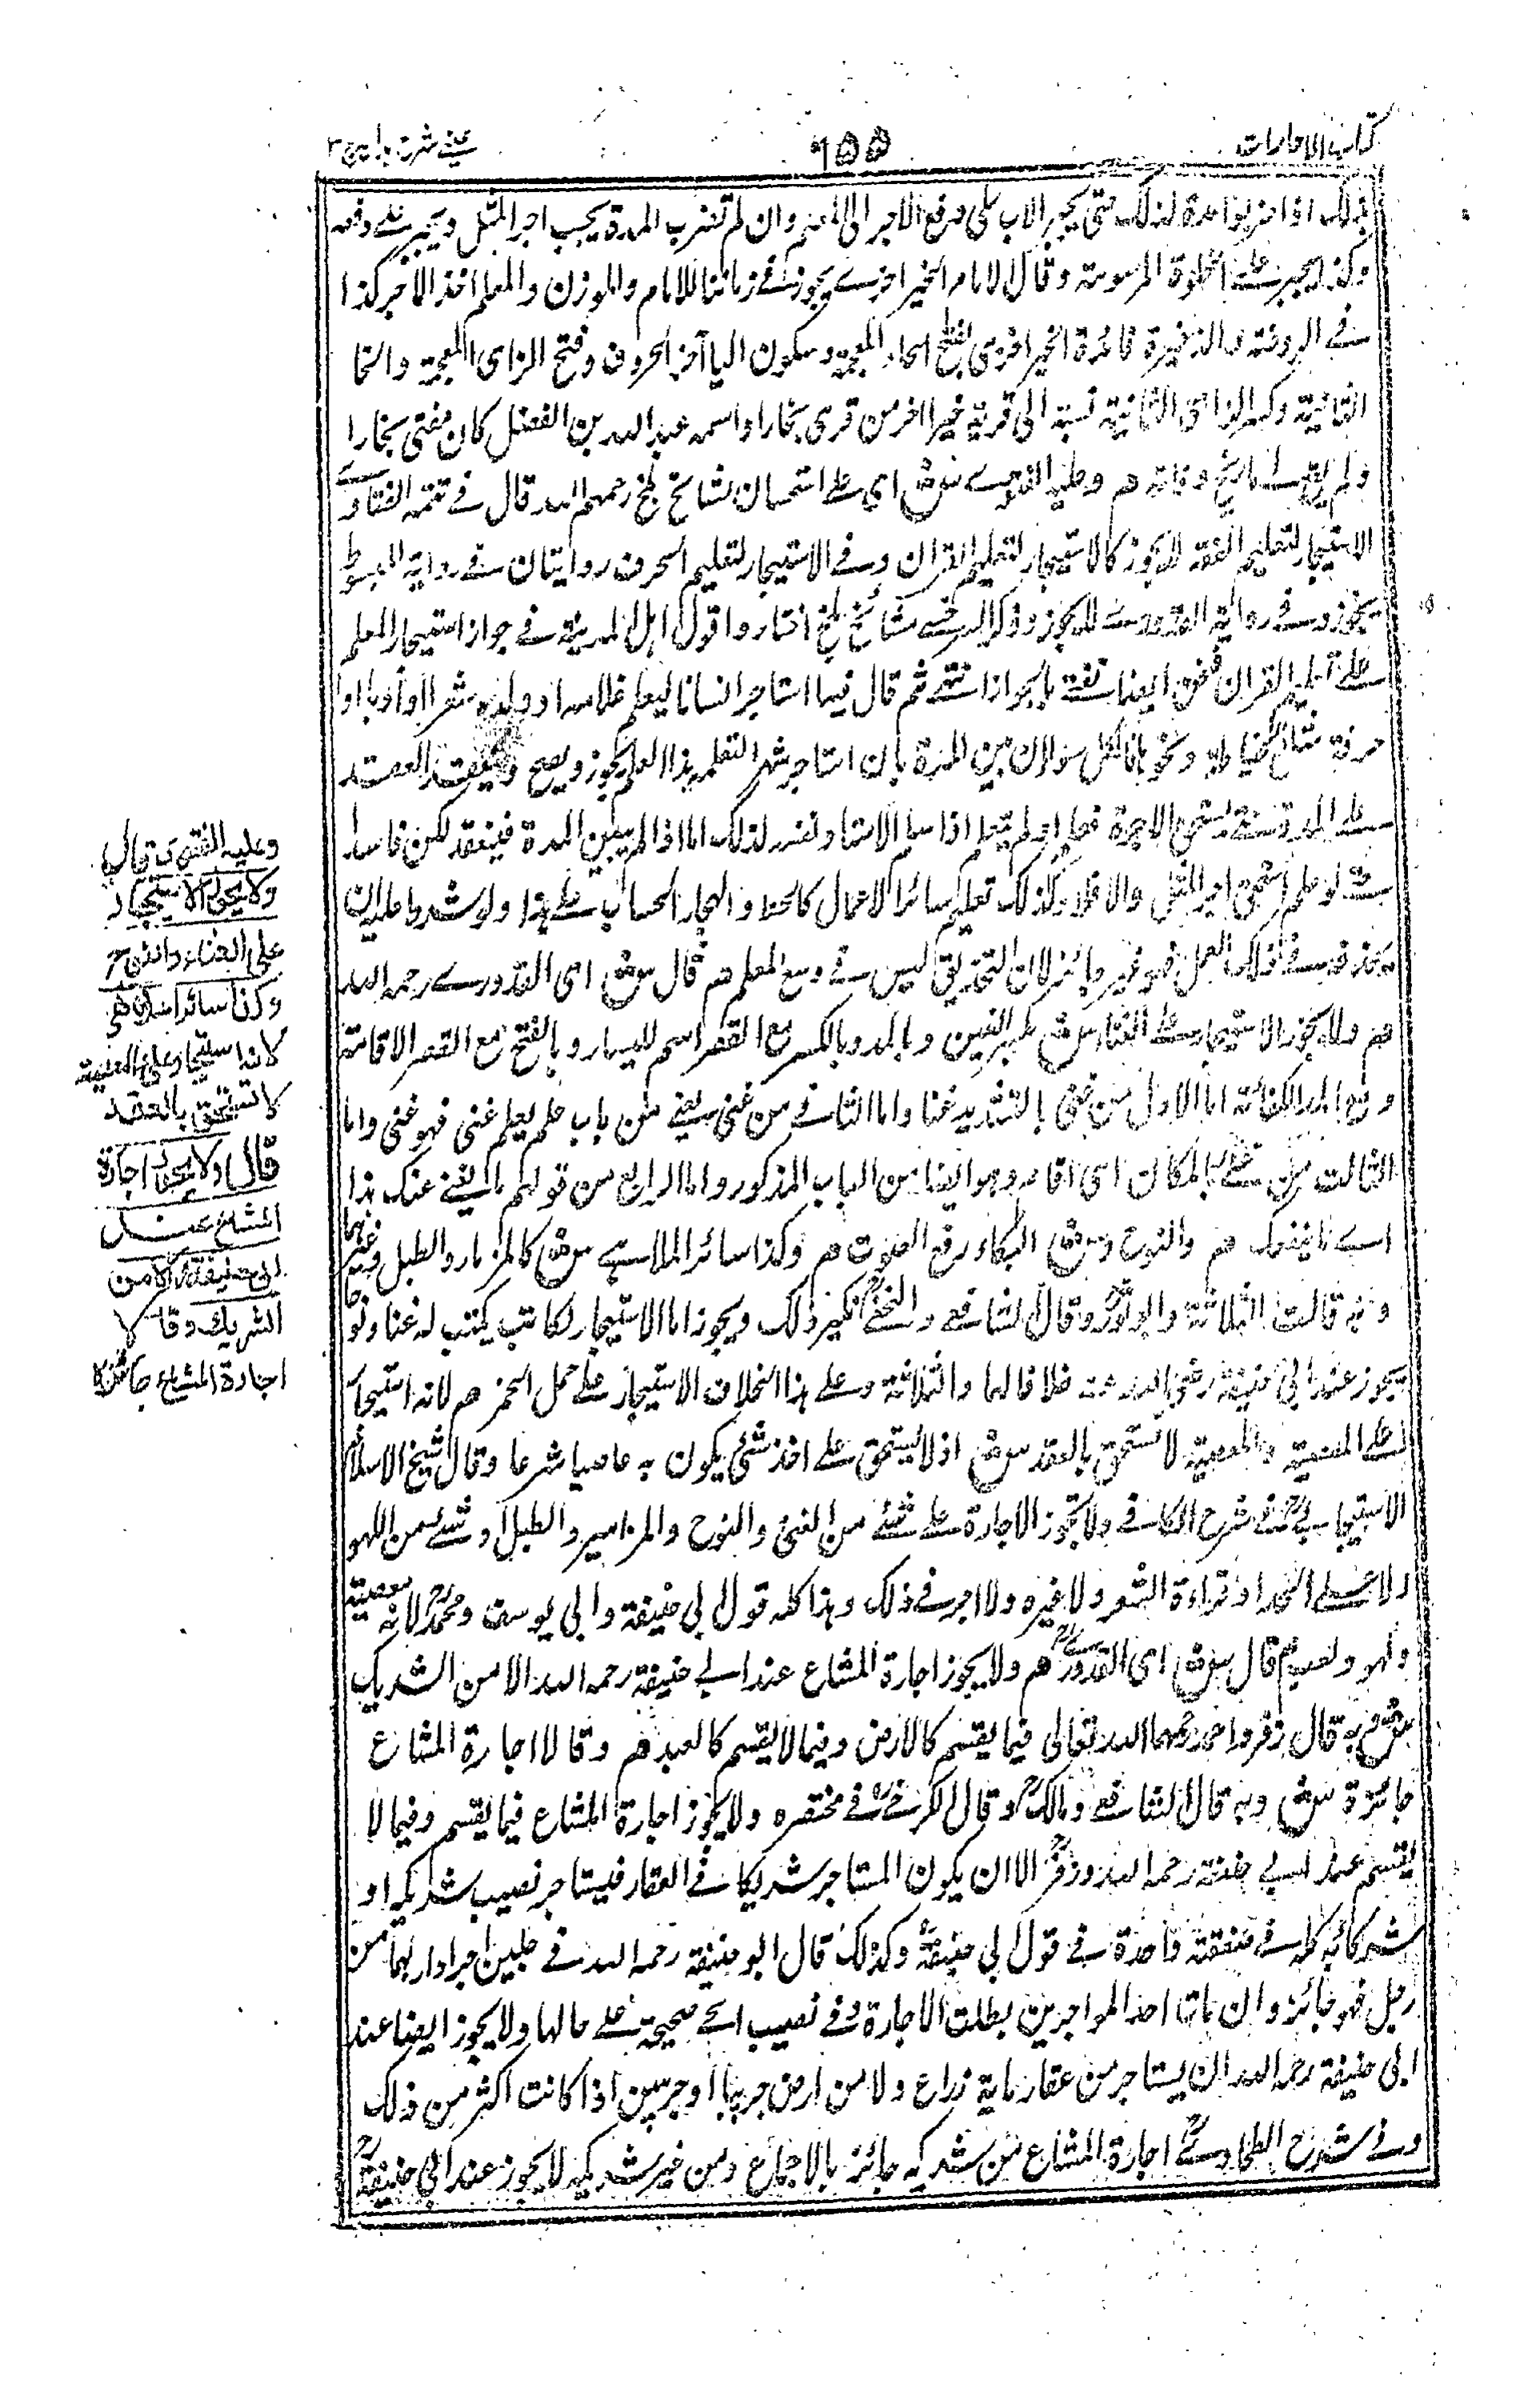 كتاب الاجارات
٦٥٥
عينے شرح ہدایہ ج ٣
لذلك حتى يجبر الاب على دفع الاجر الى المعلم وان لم تضرب المدة يجب اجر المثل ويجبر على دفعه
وكذا يجبر على الحلوة المرسومة وقال الامام الخيراخزى يجوز فى زماننا للامام والموذن والمعلم اخذ الاجر كذا
فى الروضة والذخيرة الخيراخزى بفتح الخاء المعجمة وسكون اليا آخر الحروف وفتح الزاى المعجمة والخا
الثانية نسبة الى قرية خيراخر من قرى بخارا واسمه عبد الله بن الفضل كان مفتى بخارا
ولم يقع لى تاريخ وفاته هم وعليه الفتوى ش اى على استحسان مشائخ بلخ رحمهم الله قال فى تتمة الفتاوى
الاستيجار لتعليم الفقه لا يجوز كالاستيجار لتعليم القران وفى الاستيجار لتعليم الحرف روايتان فى رواية المبسوط
يجوز وفى رواية القدورى لا يجوز وذكر السرخسى مشائخ بلخ اختاروا قول اهل المدينة فى جواز استيجار المعلم
على تعليم القران فنحن ايضا نفتى بالجواز انتهى ثم قال فيما استاجر انسانا ليعلم غلامه او ولده شعرا او أدبا او
حرفة مثل الخياطة ونحوها فالكل سواء ان بين المدة بان استاجر شهرا لتعلم هذا العلم يجوز ويصح وينعقد العقد
على المدة حتى يستحق الاجرة تعلم او لم يتعلم اذا سلم الاستاد نفسه لذلك اما اذا لم يبين المدة فينعقد لكن فاسدا
حتى لو علم استحق اجر المثل والا فلا وكذلك تعليم سائر الاعمال كالخط والهجاء والحساب على هذا ولو شرط عليه ان
يحذقه فى ذلك العمل فهو غير جائز لان التحذيق ليس فى وسع المعلم هم قال ش اى القدورى رحمه الله
هم ولا يجوز الاستيجار على الغناء ش بكسر الغين وبالمد وبالكسر مع القصر اسم لليسار وبالفتح مع القصر الاقامة
ومع المد الكفائة اما الاول من غنى بالتشديد غنا واما الثانى من غنى يغنى من باب علم يعلم غنى فهو غنى واما
الثالث من غنى بالمكان اى اقام وهو ايضا من الباب المذكور واما الرابع من قولهم ما يغنى عنك هذا
اى ما ينفعك هم والنوح ش البكاء رفع الصوت هم وكذا سائر الملاهى ش كالمزمار والطبل وغيرهما
وبه قالت الثلاثة وابو ثور وقال الشافعى والنخعى ذلك ويجوز اما الاستيجار لكاتب يكتب له غنا ونوحا
يجوز عند ابى حنيفة رضى الله عنه خلافا لهما والثلاثة وعلى هذا الخلاف الاستيجار على حمل الخمر هم لانه استيجار
على المعصية والمعصية لا تستحق بالعقد ش اذ لا يستحق على اخذ شئ يكون به عاصيا شرعا وقال شيخ الاسلام
الاسبيجابى فى شرح الكافى ولا تجوز الاجارة على شئ من الغنى والنوح والمزامير والطبل او شئ من اللهو
ولا على الحدا وقراءة الشعر ولا غيره ولا اجر فى ذلك وهذا كله قول ابى حنيفة وابى يوسف ومحمد لانه معصية
ولهو ولعب هم قال ش اى القدورى هم ولا يجوز اجارة المشاع عند ابى حنيفة رحمه الله الا من الشريك
ش وبه قال زفر واحمد رحمهما الله تعالى فيما يقسم كالارض وفيما لا يقسم كالعبد هم وقالا اجارة المشاع
جائزة ش وبه قال الشافعى ومالك وقال الكرخى فى مختصره ولا يجوز اجارة المشاع فيما يقسم وفيما لا
يقسم عند ابى حنيفة رحمه الله وزفر الا ان يكون المستاجر شريكا فى العقار فيستاجر نصيب شريكه او
شركائه كله فى صفقة واحدة فى قول ابى حنيفة وكذلك قال ابو حنيفة رحمه الله فى رجلين اجرا دارهما من
رجل فهو جائز وان مات احد المواجرين بطلت الاجارة وفى نصيب الحى صحيحة على حالها ولا يجوز ايضا عند
ابى حنيفة رحمه الله ان يستاجر من عقار ماية ذراع ولا من ارض جريبا او جريبين اذا كانت اكثر من ذلك
وفى شرح الطحاوى اجارة المشاع من شريكه جائز بالاجماع ومن غير شريكه لا يجوز عند ابى حنيفة
وعليه الفتوى قال
ولا يجوز الاستيجار
على الغناء والنوح
وكذا سائر الملاهى
لانه استيجار على المعصية
لا تستحق بالعقد
قال ولا يجوز اجارة
المشاع عند
ابى حنيفة الا من
الشريك وقالا
اجارة المشاع جائزة